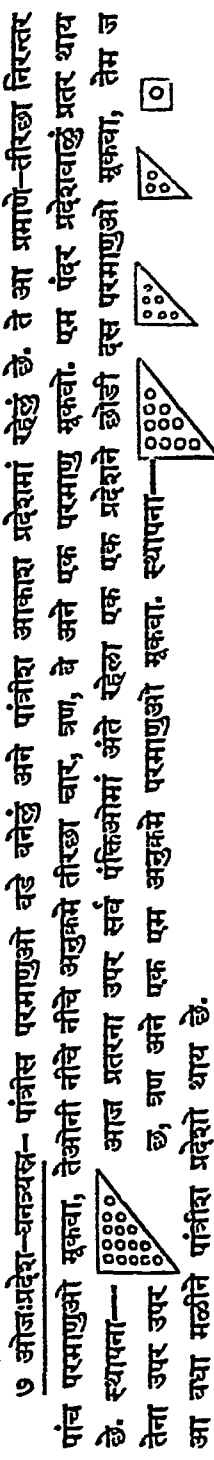 ७ ओजःप्रदेश-घनत्र्यस्र- पांत्रीस परमाणुओ वडे बनेलुं अने पांत्रीश आकाश प्रदेशमां रहेलुं छे. ते आ प्रमाणे-तीरछा निरन्तर
पांच परमाणुओ मूकवा, तेओनी नीचे नीचे अनुक्रमे तीरछा चार, त्रण, बे अने एक परमाणु मूकवो. एम पंदर प्रदेशवाळुं प्रतर थाय
छे. स्थापना— आज प्रतरना उपर सर्व पंक्तिओमां अंते रहेला एक एक प्रदेशने छोडी दस परमाणुओ मूकवा, तेम ज
तेना उपर उपर छ, त्रण अने एक एम अनुक्रमे परमाणुओ मूकवा. स्थापना—
आ बधा मळीने पांत्रीश प्रदेशो थाय छे.